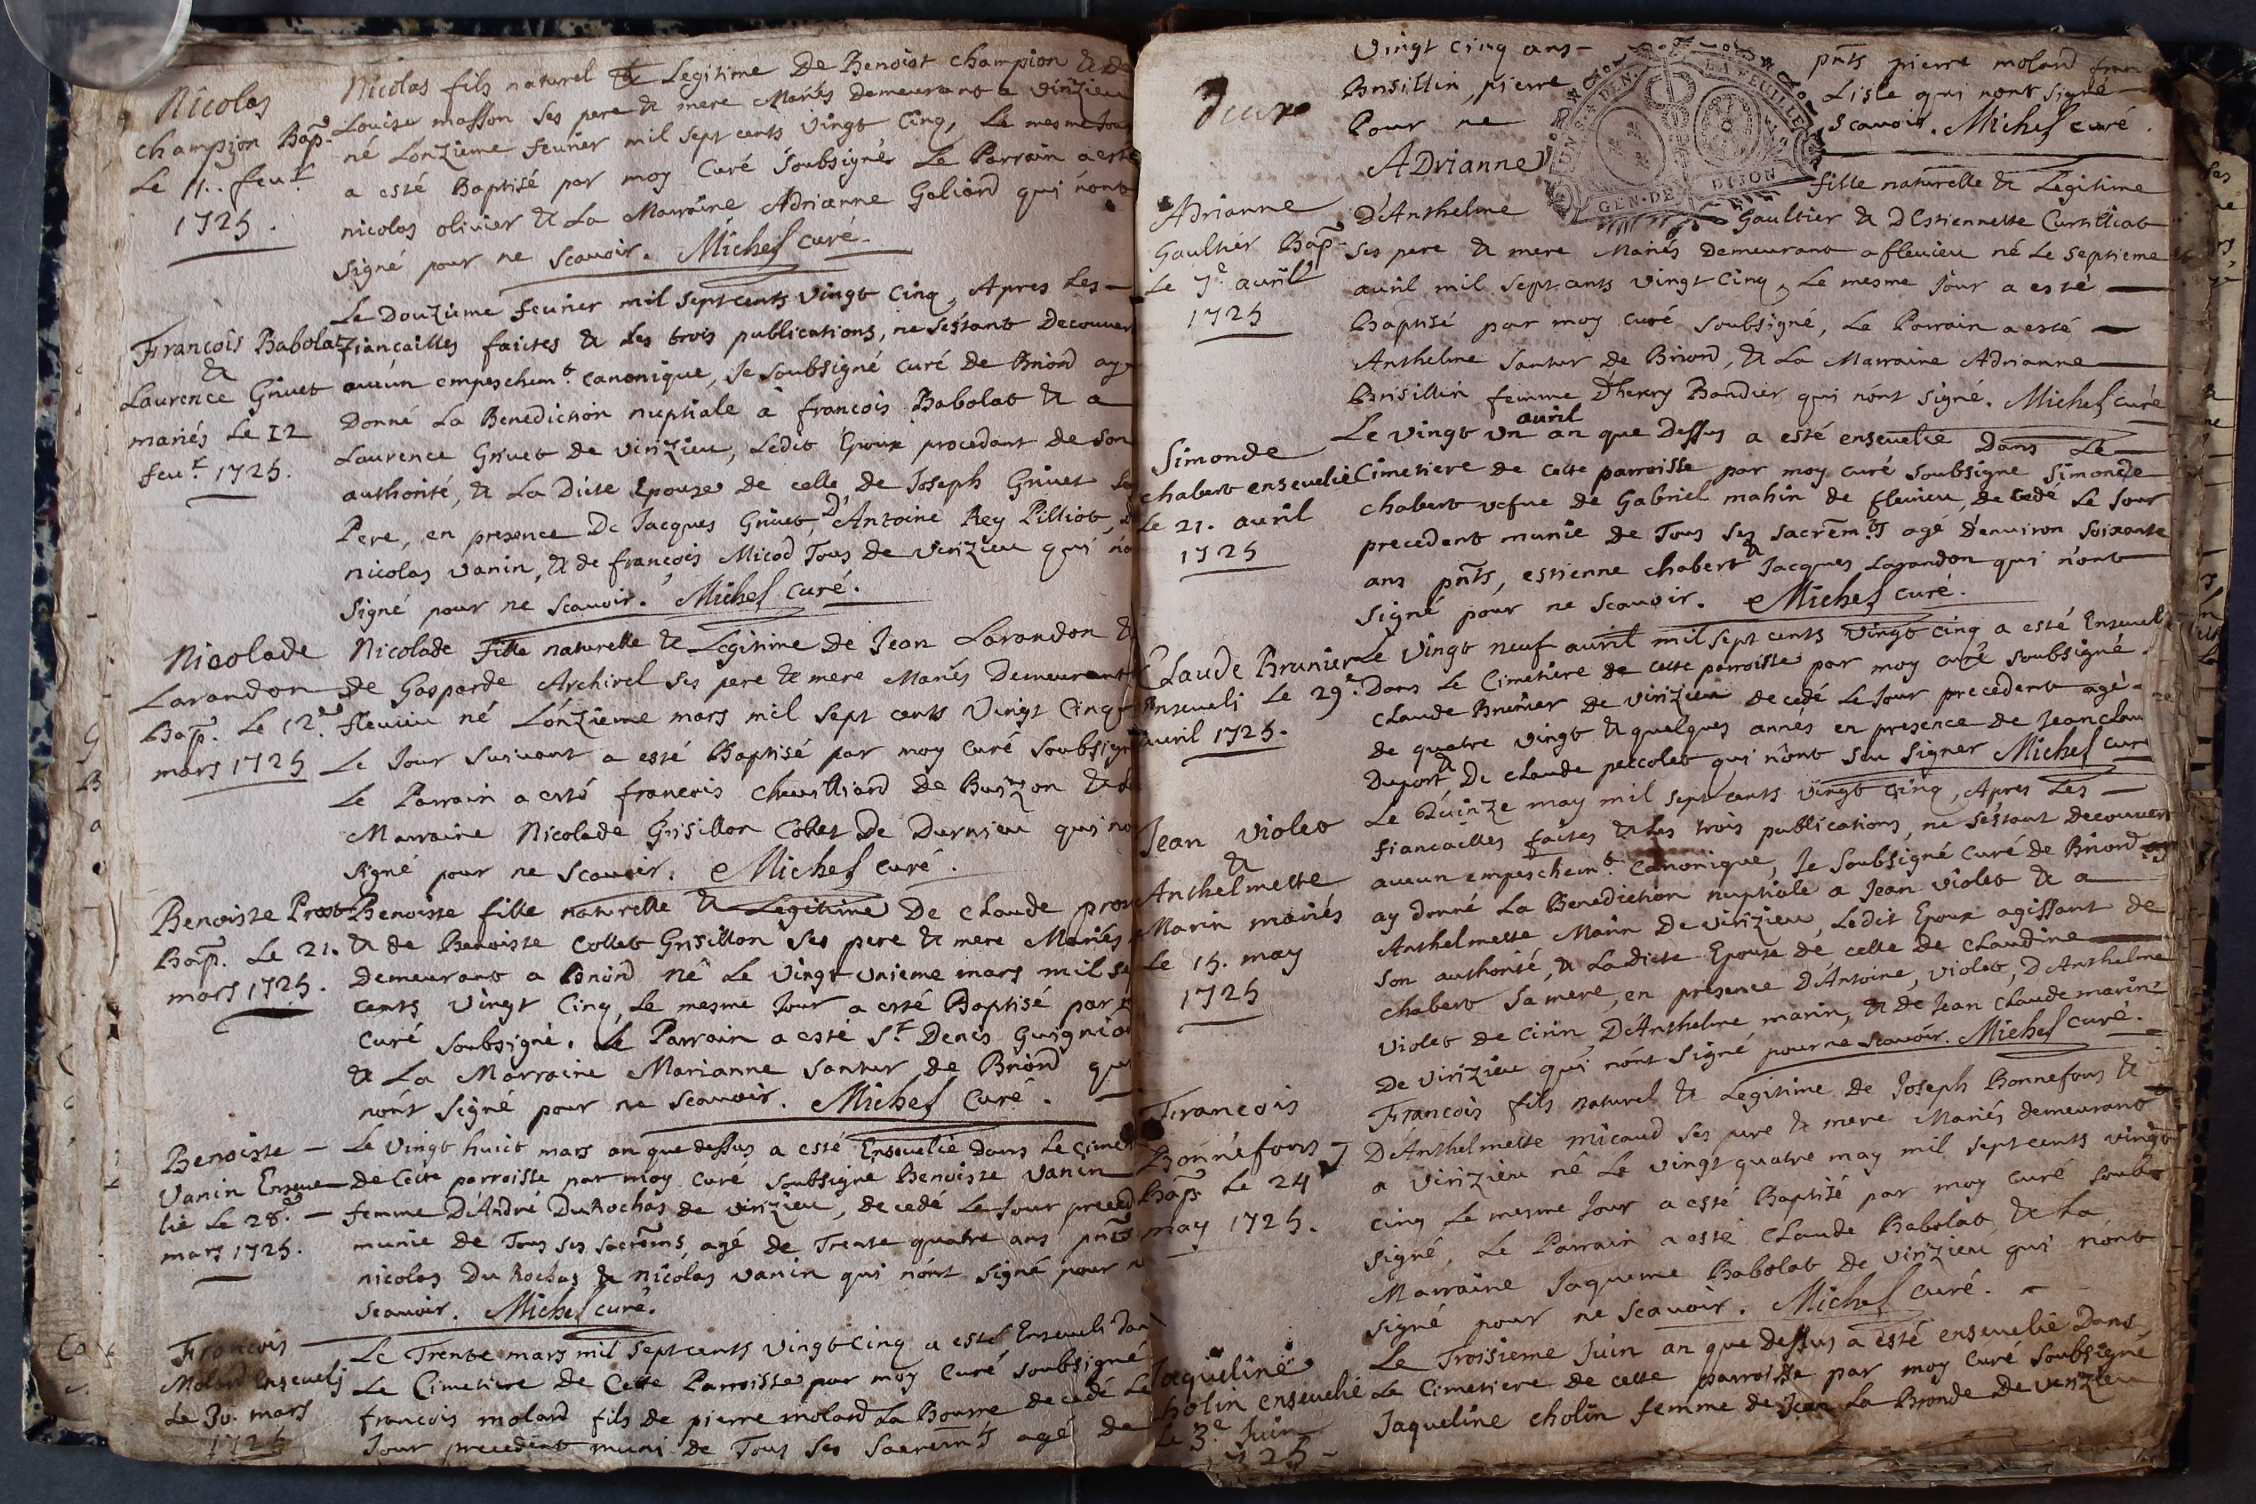 Nicolas
Champion Bap.
Le 11. feu.r
1725.
Nicolas fils naturel & Legitime De Benoist Champion & De
Louise masson Ses pere & mere Mariés Demeurant a virizieu
né Lonzieme feurier mil sept cents vingt Cinq, Le mesme Jour
a esté Baptisé par moy Curé Soubsigné Le Parrain a esté
nicolas olivier & La Marraine Adrianne Galiord qui nont
Signé pour ne Scavoir. Michel curé.
François Babolat
&
Laurence Grivet
mariés Le 12
feu.r 1725.
Le Douzieme feurier mil sept cents vingt cinq, Apres Les
fiancailles faictes & Les trois publications, ne Sestant Decouvert
aucun empeschem.t canonique, Je Soubsigné curé de Briord ay
Donné La Benediction nuptiale à françois Babolat & a
Laurence Grivet de virizieu, Ledit Epoux procedant de Son
authorité, & La Dicte Epouze de celle de Joseph Grivet Son
Pere, en presence De Jacques Grivet, D'Antoine Rey Pilliot, De
nicolas vanin, & de françois Micod Tous de virizieu qui non
Signé pour ne Scavoir. Michel curé.
Nicolade
Larandon
Bap. Le 12.e
mars 1725
Nicolade fille naturelle & Legitime de Jean Larandon &
de Gasparde Archirel Ses pere & mere Mariés Demeurant
fleuieu né Lonzieme mars mil Sept cents Vingt Cinq
Le Jour Suivant a esté Baptisé par moy Curé Soubsigné
Le Parrain a esté francois Chevilliard de Buizon & La
Marraine Nicolade Grisillon Collet De Durnieu qui non
Signé pour ne Scavoir. Michel curé.
Benoiste Prost
Bap. Le 21.
mars 1725.
Benoiste fille naturelle & Legitime De Claude prost
& de Benoiste Collet Grisillon Ses pere & mere Mariés
Demeurant a Briord Né Le vingt unieme mars mil sept
cents vingt Cinq, Le mesme Jour a esté Baptisé par
Curé Soubsigné. Le Parrain a esté S.r Denis Guigniar
& La Marraine Marianne Santur de Briord qui
nont Signé pour ne Scavoir. Michel Curé.
Benoiste
Vanin Enseue
lie Le 28.e
mars 1725.
Le vingt huit mars an que dessus a esté Enseuelie dans Le Cime
de Cette parroisse par moy Curé Soubsigné Benoiste Vanin
femme D'André DuRochas de virizieu, decedé Le Jour preced
munie de Tous ses Sacrems, agé de Trente quatre ans pnts
nicolas Du Rochas & nicolas vanin qui nont Signé pour n
Scavoir. Michel curé.
Francois
Molard Enseueli
Le 30. mars
1725
Le Trente mars mil Sept cents vingt Cinq a esté Enseueli Dan
Le Cimetiere de Cette Parroisse par moy Curé Soubsigné
francois molard fils de pierre molard La Bourre decedé Le
Jour precedent muni de Tous Ses Sacrem.ts agé de
Deux
vingt cinq ans
Brisillin, pierre
Pour ne
pnts pierre molard fran
Lisle qui nont Signé
Scavoir. Michel curé.
GEN. DE DIJON
LA FEUILLE
Adrianne
Gaultier Bap.
Le 7.e avril
1725
Adrianne fille naturelle & Legitime
D'Anthelme Gaultier & D'Estiennette Curtilliat
Ses pere & mere Mariés Demeurant a fleuieu né Le Septieme
auril mil Sept cents vingt Cinq, Le mesme Jour a esté
Baptisé par moy curé Soubsigné, Le Parrain a esté
Anthelme Santur de Briord, & La Marraine Adrianne
Brisillin femme D'henry Bandier qui nont Signé. Michel curé
Simonde
chabert enseuelie
Le 21. auril
1725
Le vingt un auril an que Dessus a esté enseuelie Dans Le
Cimetiere de cette parroisse par moy curé Soubsigné Simonde
chabert vefue de Gabriel mahin de fleuieu, decedé Le Jour
precedent munie de Tous Ses Sacrem.ts agé d'environ Soixante
ans pnts, estienne chabert & Jacques Larandon qui n'ont
Signé pour ne Scavoir. Michel curé.
Claude Brunier
Enseueli Le 29.e
auril 1725.
Le vingt neuf auril mil Sept cents vingt cinq a esté Enseuel
Dans Le Cimetiere de cette parroisse par moy curé Soubsigné
Claude Brunier de virizieu decedé Le Jour precedent agé
de quatre vingt & quelques annés en presence de Jean Clau
Duport & De Claude peccolet qui nont Seu Signer Michel curé
Jean violet
&
Anthelmette
Marin mariés
Le 15. may
1725
Le Quinze may mil Sept cents vingt cinq, Apres Les
fiancailles faites & Les trois publications, ne Sestant Decouvert
aucun empeschem.t Canonique, Je Soubsigné Curé de Briord
ay donné La Benediction nuptiale a Jean violet & a
Anthelmette Marin De virizieu, Ledit Epoux agissant de
Son authorité, & La dicte Epouze de celle de Claudine
chabert Sa mere, en presence D'Antoine, violet, D'Anthelme
violet de Cirin, D'Anthelme marin, & de Jean Claude marin
De virizieu qui nont Signé pour ne Scavoir. Michel curé.
Francois
Bonnéfons
Bap. Le 24
may 1725.
François fils naturel & Legitime de Joseph Bonnefons &
D'Anthelmette micaud Ses pere & mere Mariés demeurant
a virizieu né Le vingt quatre may mil Sept cents vingt
cinq Le mesme Jour a esté Baptisé par moy Curé Soub
Signé, Le Parrain a esté Claude Babolat, & La
Marraine Jaqueme Babolat de virizieu qui nont
Signé pour ne Scavoir. Michel curé.
Jaqueline
cholin enseuelie
Le 3.e Juin
1725
Le Troisieme Juin an que dessus a esté enseuelie Dans
Le Cimetiere de cette parroisse par moy Curé Soubsigné
Jaqueline cholin femme de Jean La Bronde De virizieu